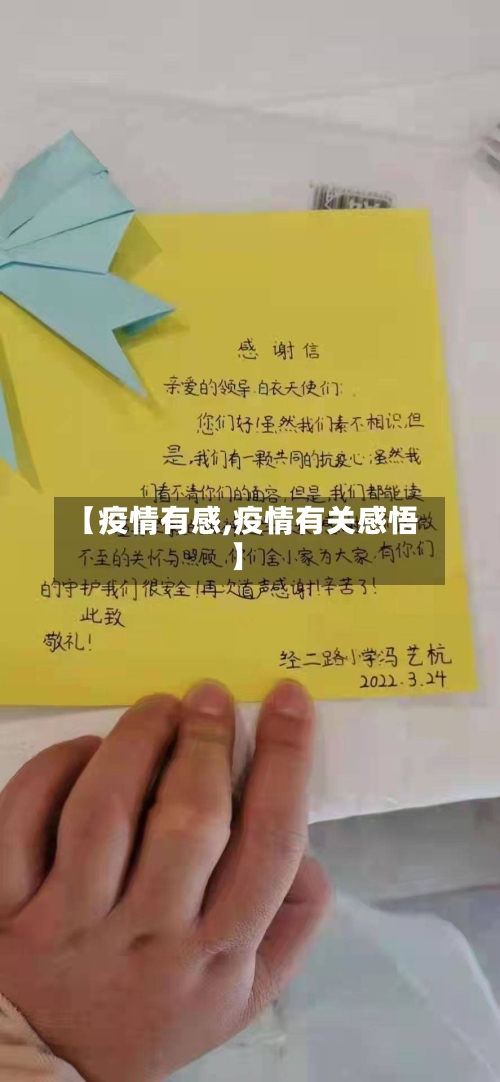 感谢信
亲爱的领导、白衣天使们:
您们好!虽然我们素不相识,但
是,我们有一颗共同的抗疫心,虽然我
们看不清你们的面容,但是我们都能读
【疫情有感,疫情有关感悟
】
微
不至的关怀与照顾,你们舍小家为大家,有你们
的守护我们很安全!再次道声感谢!辛苦了!
此致
敬礼!
经二路小学冯艺杭
2022.3.24